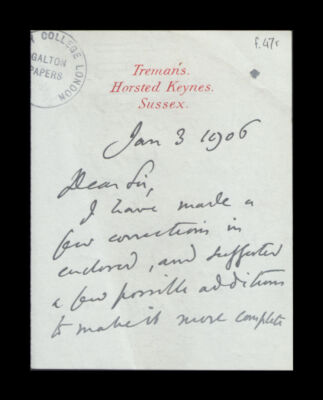 COLLEGE LONDON
GALTON
PAPERS
f.47r
Treman's.
Horsted Keynes.
Sussex.
Jan 3 1906
Dear Sir,
I have made a
few corrections in
enclosed, and suggested
a few possible additions
to make it more complete